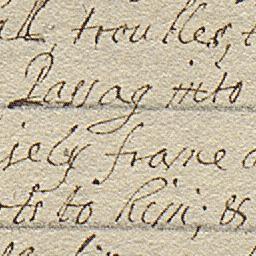 all, troubles,
Passag into
isely frame
rts to him; &